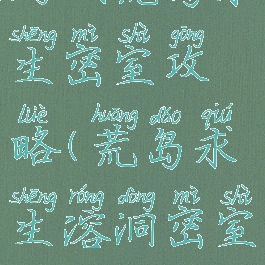 shēng mì shì gōng
生密室攻
lüè huāng dǎo qiú
略(荒岛求
shēng róng dòng mì shì
生溶洞密室